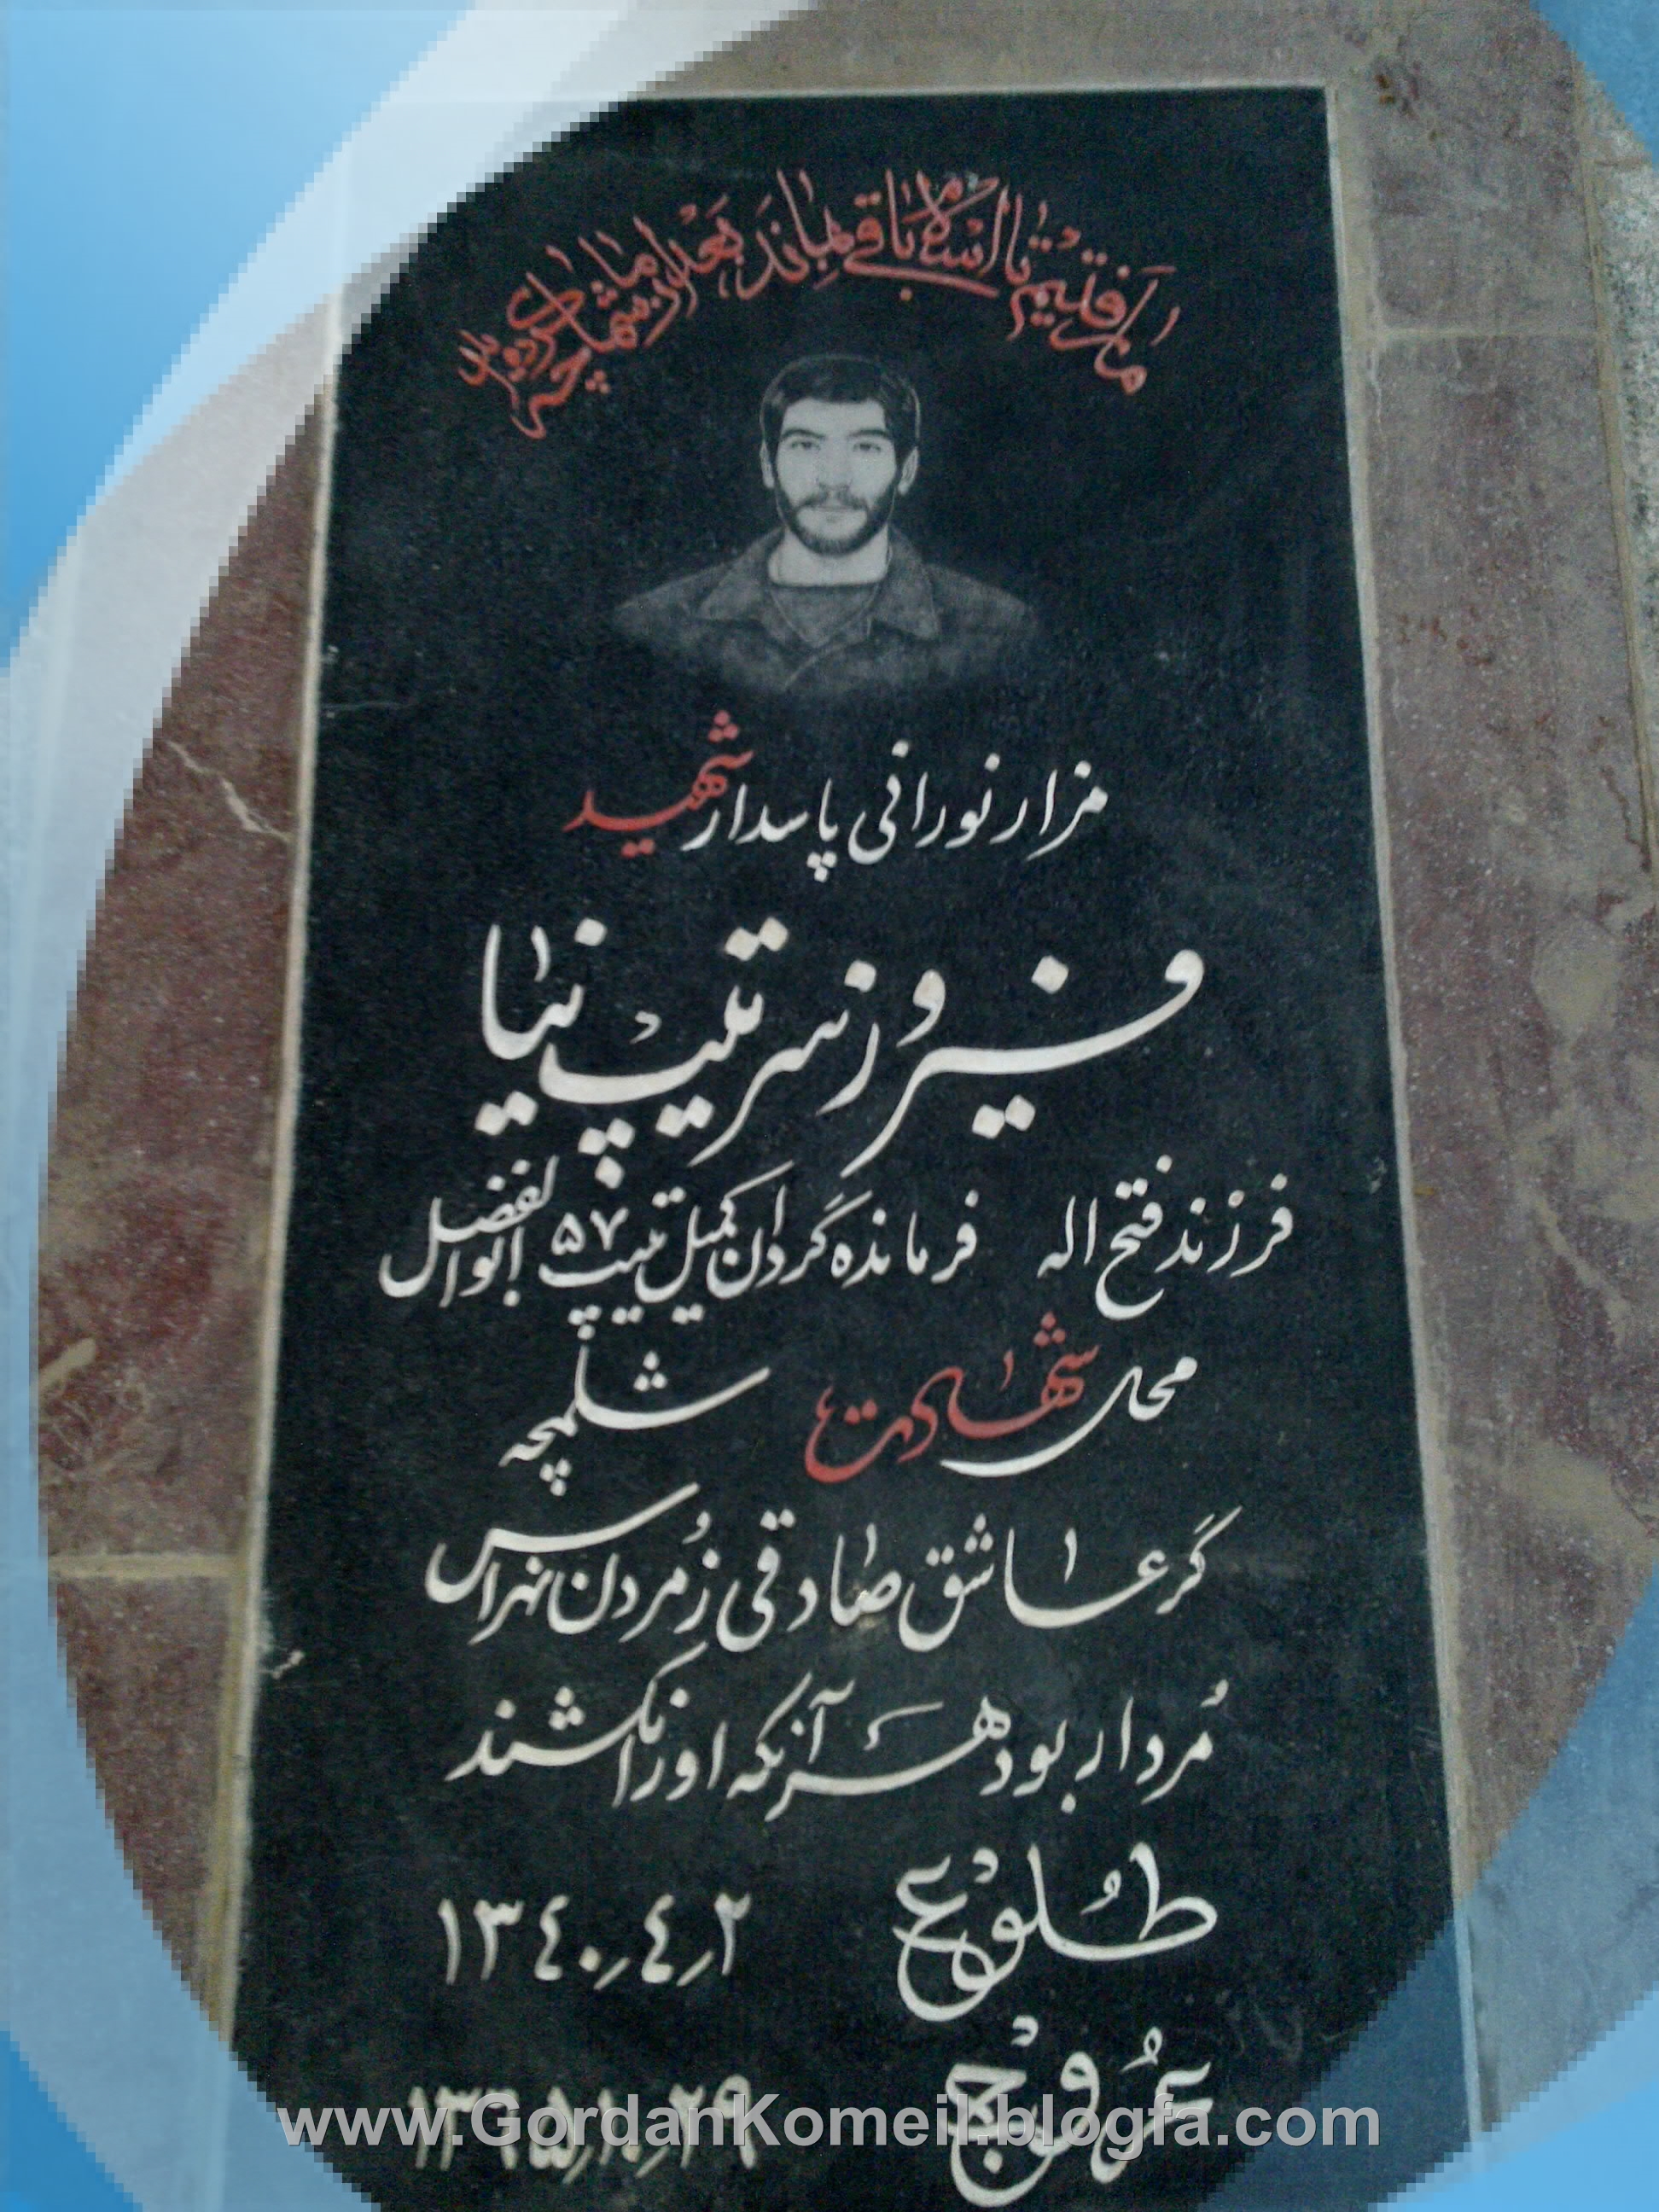 ما رفتیم تا اسلام باقی بماند بعد از ما شما چه خواهید کرد
مزار نورانی پاسدار شهید
فیروز سرتیپ نیا
فرزند فتح اله فرمانده گردان کمیل تیپ ۵۷ ابوالفضل
محل شهادت شلمچه
گر عاشق صادقی ز مردن مهراس
مردار بود هر آنکه او را نکشند
طلوع ۱۳٤۰٫٤٫۲
عروج ۱۳٦۵٫۱۰٫۲۹
www.GordanKomeil.blogfa.com